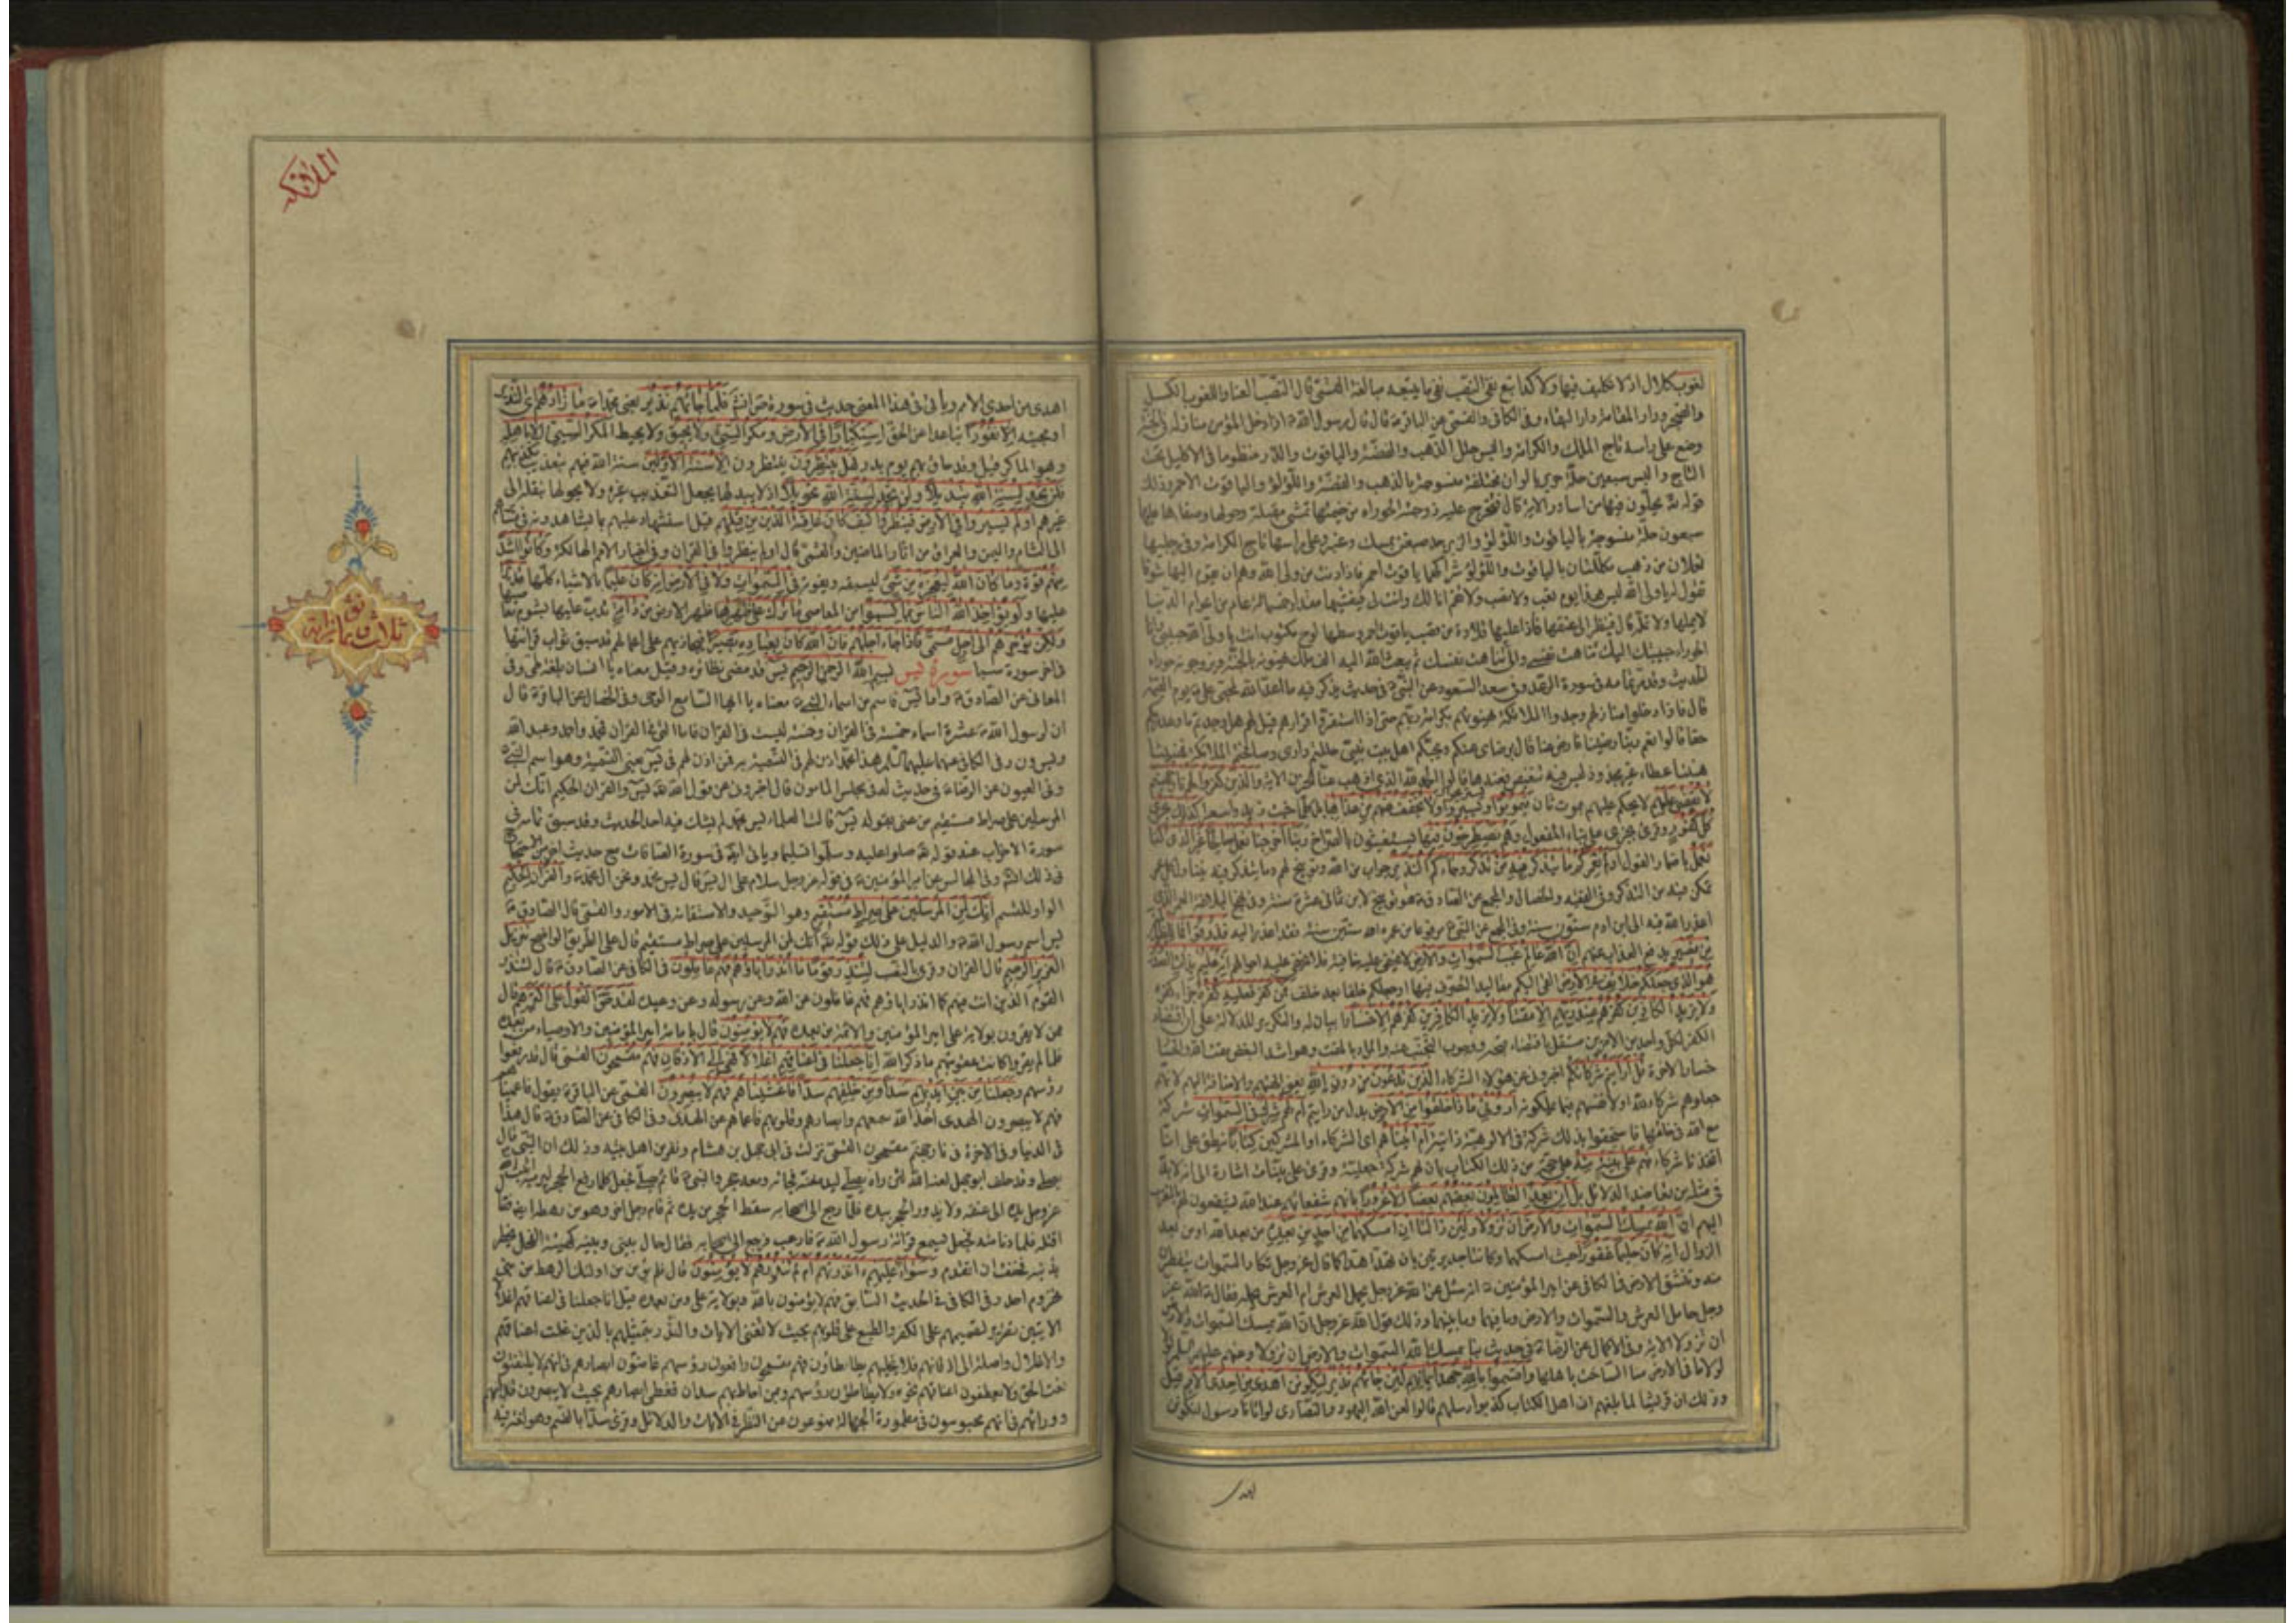 لغوب كلال اذ لا تكليف فيها ولا كد اتبع نفى النصب نفى ما يتبعه مبالغة القمى قال النصب العنا واللغوب الكسل
والضجر ودار المقامة دار البقاء وفى الكافى والقمى عن الباقرع قال قال رسول الله ص اذا دخل المؤمن منازله فى الجنة
وضع على راسه تاج الملك والكرامة والبس حلل الذهب والفضة والياقوت والدر منظوما فى الاكليل تحت
التاج والبس سبعين حلة حرير بالوان مختلفة منسوجة بالذهب والفضة واللؤلؤ والياقوت الاحمر وذلك
قوله تع يحلون فيها من اساور الاية قال فتخرج عليه زوجته الحوراء من خيمتها تمشى مقبلة وحولها وصفاءها عليها
سبعون حلة منسوجة بالياقوت واللؤلؤ والزبرجد صبغن بمسك وعنبر وعلى راسها تاج الكرامة وفى رجليها
نعلان من ذهب مكللتان بالياقوت واللؤلؤ شراكهما ياقوت احمر فاذا دنت من ولى الله وهم ان يقوم اليها شوقا
تقول له يا ولى الله ليس هذا يوم تعب ولا نصب ولا تقم انا لك وانت لى فيعتنقها مقدار خمسمائة عام من اعوام الدنيا
لا يملها ولا تمله قال فينظر الى عنقها فاذا عليها قلادة من قصب ياقوت احمر وسطها لوح مكتوب انت يا ولى الله حبيبى وانا
الحوراء حبيبتك اليك تناهت نفسى والى تناهت نفسك ثم يبعث الله اليه الف ملك يهنونه بالجنة ويزوجونه حوراء
الحديث وقد مر تمامه فى سورة الرعد وفى سعد السعود عن النبى ص فى حديث يذكر فيه ما اعد الله لمحبى على ع يوم القيمة
قال فاذا دخلوا منازلهم وجدوا الملائكة يهنونهم بكرامة ربهم حتى اذا استقروا قرارهم قيل لهم هل وجدتم ما وعد ربكم
حقا قالوا نعم ربنا رضينا فارض عنا قال برضاى عنكم وبحبكم اهل بيت نبيى حللتم دارى وصافحتم الملائكة فهنيئا
هنيئا عطاء غير مجذوذ ليس فيه تنغيص فعندها قالوا الحمد لله الذى اذهب عنا الحزن الاية والذين كفروا لهم نار جهنم
لا يقضى عليهم لا يحكم عليهم بموت ثان فيموتوا ويستريحوا ولا يخفف عنهم من عذابها بل كلما خبت زيد اسعارها كذلك نجزى
كل كفور وقرئ يجزى على بناء المفعول وهم يصطرخون فيها يستغيثون بالصراخ ربنا اخرجنا نعمل صالحا غير الذى كنا
نعمل باضمار القول اولم نعمركم ما يتذكر فيه من تذكر وجاءكم النذير جواب من الله وتوبيخ لهم وما يتذكر فيه يتناول كل عمر
تمكن فيه من التذكر وفى الفقيه والخصال والمجمع عن الصادق ع هو توبيخ لابن ثمانى عشرة سنة وفى نهج البلاغة العمر الذى
اعذر الله فيه الى ابن ادم ستون سنة وفى المجمع عن النبى ص مرفوعا من عمره الله ستين سنة فقد اعذر اليه فذوقوا فما للظالمين
من نصير يدفع العذاب عنهم ان الله عالم غيب السموات والارض لا يخفى عليه خافية فلا يخفى عليه احوالهم انه عليم بذات الصدور
هو الذى جعلكم خلائف فى الارض القى اليكم مقاليد التصرف فيها او جعلكم خلفا بعد خلف فمن كفر فعليه كفره جزاء كفره
ولا يزيد الكافرين كفرهم عند ربهم الا مقتا ولا يزيد الكافرين كفرهم الا خسارا بيان له والتكرير للدلالة على ان اقتضاء
الكفر لكل واحد من الامرين مستقل باقتضاء قبحه ووجوب التجنب عنه والمراد بالمقت وهو اشد البغض مقت الله وبالخسا
خسار الاخرة قل ارايتم شركائكم اخبرونى عن هؤلاء الشركاء الذين تدعون من دون الله يعنى الهتهم والاضافة اليهم لانهم
جعلوهم شركاء لله او لانفسهم فيما يملكونه ارونى ماذا خلقوا من الارض بدل من ارايتم ام لهم شرك فى السموات شركة
مع الله فى خلقها فاستحقوا بذلك شركة فى الالوهية ذاتية ام اتيناهم اى الشركاء او المشركين كتابا ينطق على انا
اتخذنا شركاء فهم على بينة منه على حجة من ذلك الكتاب بان لهم شركة جعلية وقرئ على بينات اشارة الى انه لابد
فى مثله من تعاضد الدلائل بل ان يعد الظالمون بعضهم بعضا الا غرورا بانهم شفعاؤهم عند الله يشفعون لهم بالتقرب
اليهم ان الله يمسك السموات والارض ان تزولا ولئن زالتا ان امسكهما من احد من بعده من بعد الله او من بعد
الزوال انه كان حليما غفورا حيث امسكهما وكانتا جديرتين بان تهدا هدا كما قال عز وجل تكاد السموات يتفطرن
منه وتنشق الارض فى الكافى عن امير المؤمنين ع انه سئل عن الله عز وجل يحمل العرش ام العرش يحمله فقال ع الله عز
وجل حامل العرش والسموات والارض وما فيهما وما بينهما وذلك قول الله عز وجل ان الله يمسك السموات والارض
ان تزولا الاية وفى الاكمال عن الرضا ع فى حديث بنا يمسك الله السموات والارض ان تزولا وعنهم عليهم السلم
لولا ما فى الارض منا لساخت باهلها واقسموا بالله جهد ايمانهم لئن جاءهم نذير ليكونن اهدى من احدى الامم قيل
وذلك ان قريشا لما بلغهم ان اهل الكتاب كذبوا رسلهم قالوا لعن الله اليهود والنصارى لو اتانا رسول لنكونن
اهدى
الملائكة
اهدى من احدى الامم وياتى فى هذا المعنى حديث فى سورة ص انشاء فلما جاءهم نذير يعنى محمدا ص ما زادهم اى النذير
او مجيئه الا نفورا تباعدا عن الحق استكبارا فى الارض ومكر السيئ ولا يحيق ولا يحيط المكر السيئ الا باهله
وهو الماكر قيل وقد حاق بهم يوم بدر فهل ينظرون ينتظرون الا سنة الاولين سنة الله فيهم بتعذيب مكذبيهم
فلن تجد لسنة الله تبديلا ولن تجد لسنة الله تحويلا اذ لا يبدلها بجعل التعذيب غيره ولا يحولها بنقله الى
غيرهم اولم يسيروا فى الارض فينظروا كيف كان عاقبة الذين من قبلهم قيل استشهاد عليهم بما يشاهدونه فى مسايرهم
الى الشام واليمن والعراق من اثار الماضين والقمى قال اولم ينظروا فى القران وفى اخبار الامم الهالكة وكانوا اشد
منهم قوة وما كان الله ليعجزه من شئ ليسبقه ويفوته فى السموات ولا فى الارض انه كان عليما بالاشياء كلها قديرا
عليها ولو يؤاخذ الله الناس بما كسبوا من المعاصى ما ترك على ظهرها ظهر الارض من دابة تدب عليها بشوم معاصيهم
ولكن يؤخرهم الى اجل مسمى فاذا جاء اجلهم فان الله كان بعباده بصيرا فيجازيهم على اعمالهم قد سبق ثواب قرائتها
فى اخر سورة سبا سورة يس بسم الله الرحمن الرحيم يس قد مضى نظائره وقيل معناه يا انسان بلغة طى وفى
المعانى عن الصادق ع واما يس فاسم من اسماء النبى ص معناه يا ايها السامع الوحى وفى الخصال عن الباقر ع قال
ان لرسول الله ص عشرة اسماء خمسة فى القران وخمسة ليست فى القران فاما التى فى القران فمحمد واحمد وعبد الله
ويس ون وفى الكافى عنهما عليهما السلم هذا محمد اذن لهم فى التسمية به فمن اذن لهم فى يس يعنى التسمية وهو اسم النبى ص
وفى العيون عن الرضا ع فى حديث له فى مجلس المامون قال اخبرونى عن قول الله تع يس والقران الحكيم انك لمن
المرسلين على صراط مستقيم من عنى بقوله يس قالت العلماء يس محمد لم يشك فيه احد الحديث وقد سبق تمامه فى
سورة الاحزاب عند قوله تع صلوا عليه وسلموا تسليما وياتى انه فى سورة الصافات مع حديث اخر من الاحتجاج
فى ذلك انشاء وفى المجالس عن امير المؤمنين ع فى قوله عز وجل سلام على ال يس قال يس محمد ونحن ال محمد ص والقران الحكيم
الواو للقسم انك لمن المرسلين على صراط مستقيم وهو التوحيد والاستقامة فى الامور والقمى قال الصادق ع
يس اسم رسول الله ص والدليل على ذلك قوله تع انك لمن المرسلين على صراط مستقيم قال على الطريق الواضح تنزيل
العزيز الرحيم قال القران وقرئ بالنصب لتنذر قوما ما انذر اباؤهم فهم غافلون فى الكافى عن الصادق ع قال لتنذر
القوم الذين انت فيهم كما انذر اباؤهم فهم غافلون عن الله وعن رسوله وعن وعيده لقد حق القول على اكثرهم قال
ممن لا يقرون بولاية على امير المؤمنين والائمة من بعده فهم لا يؤمنون قال بامامة امير المؤمنين والاوصياء من بعده
فلما لم يقروا كانت عقوبتهم ما ذكر الله انا جعلنا فى اعناقهم اغلالا فهى الى الاذقان فهم مقمحون القمى قال قد رفعوا
رؤسهم وجعلنا من بين ايديهم سدا ومن خلفهم سدا فاغشيناهم فهم لا يبصرون القمى عن الباقر ع يقول فاعميناهم
فهم لا يبصرون الهدى اخذ الله سمعهم وابصارهم وقلوبهم فاعماهم عن الهدى وفى الكافى عن الصادق ع قال هذا
فى الدنيا وفى الاخرة فى نار جهنم مقمحون القمى نزلت فى ابى جهل بن هشام ونفر من اهل بيته وذلك ان النبى ص قام
يصلى وقد حلف ابو جهل لعنه الله لئن راه يصلى ليدمغنه فجائه ومعه حجر والنبى ص قائم يصلى فجعل كلما رفع الحجر ليرميه اثبت الله
عز وجل يده الى عنقه ولا يدور الحجر بيده فلما رجع الى اصحابه سقط الحجر من يده ثم قام رجل اخر وهو من رهطه ايضا فقال انا
اقتله فلما دنا منه فجعل يسمع قرائة رسول الله ص فارعب فرجع الى اصحابه فقال حال بينى وبينه كهيئة الفحل يخطر
بذنبه فخفت ان اتقدم وسواء عليهم ءانذرتهم ام لم تنذرهم لا يؤمنون قال فلم يؤمن من اولئك الرهط من بنى
مخزوم احد وفى الكافى فى الحديث السابق فهم لا يؤمنون بالله وبولاية على ومن بعده قيل انا جعلنا فى اعناقهم اغلالا
الايتين تقرير لتصميمهم على الكفر والطبع على قلوبهم بحيث لا تغنى الايات والنذر بتمثيلهم بالذين غلت اعناقهم
والاغلال واصلة الى اذقانهم فلا يخليهم يطاطاؤن فهم مقمحون رافعون رؤسهم غاضون ابصارهم فى انهم لا يلتفتون
لفت الحق ولا يعطفون اعناقهم نحوه ولا يطاطؤن رؤسهم ومن احاط بهم سدان فغطى ابصارهم بحيث لا يبصرون قدامهم
وورائهم فى انهم محبوسون فى مطمورة الجهالة ممنوعون عن النظر فى الايات والدلائل وقرئ سدا بالضم وهو لغة فيه